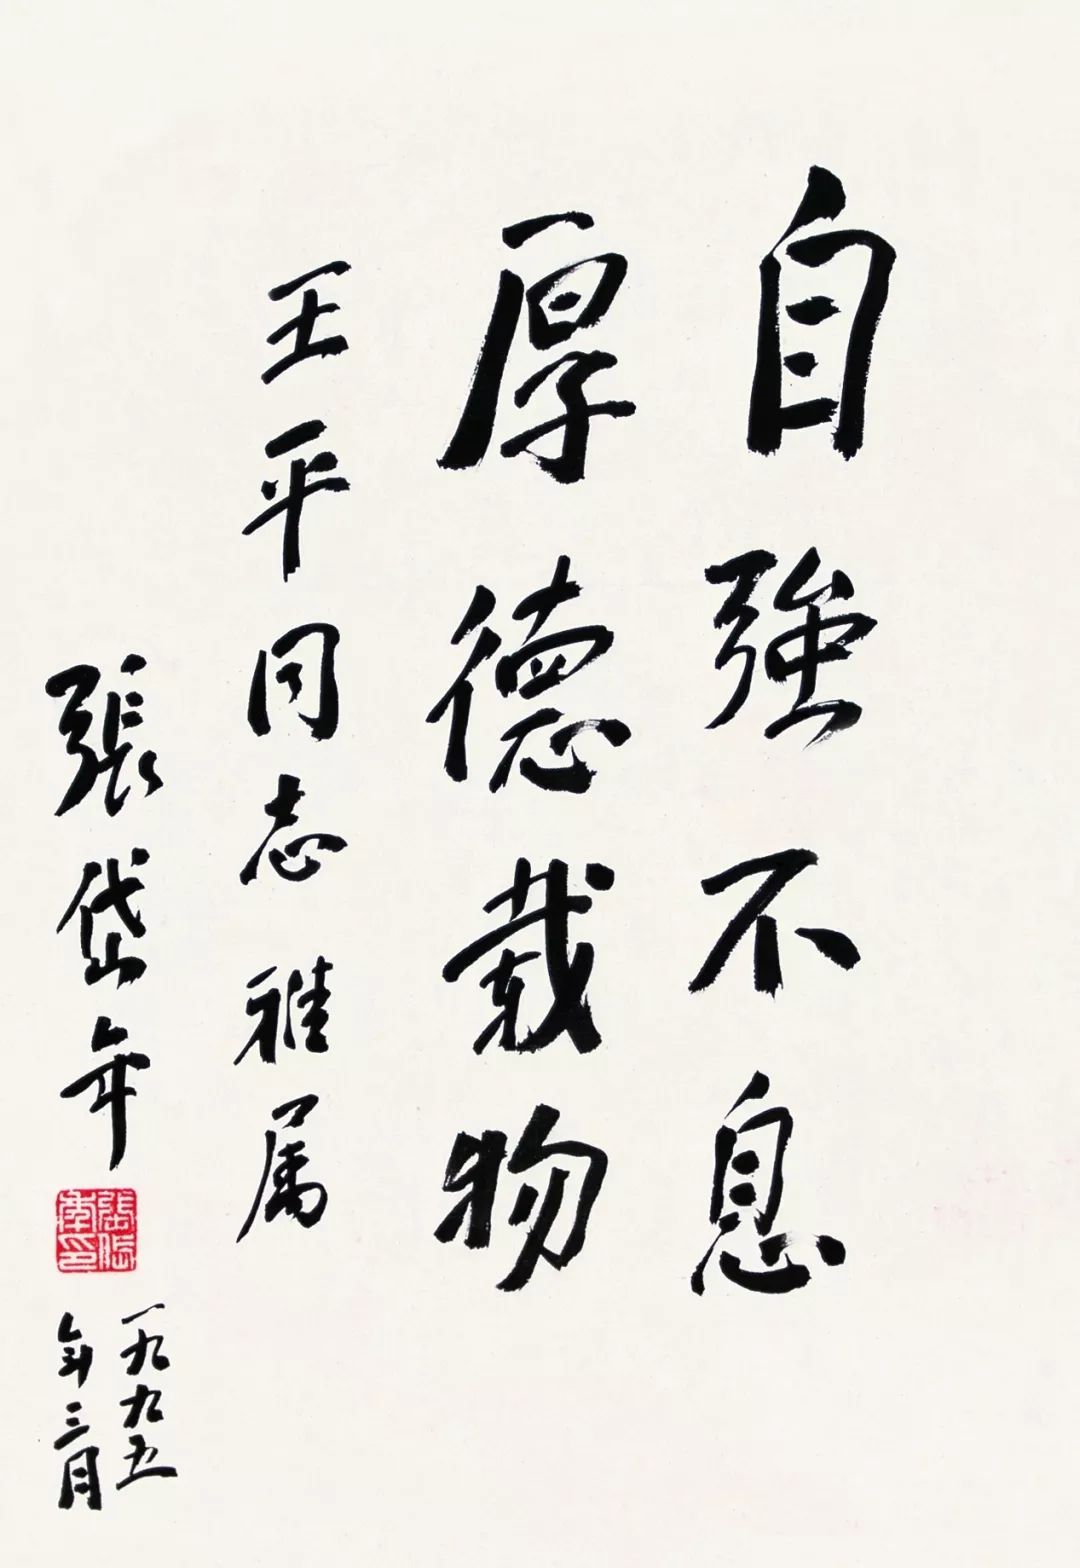 自強不息
厚德載物
王平同志雅属
張岱年
張岱年印
一九九五
年三月